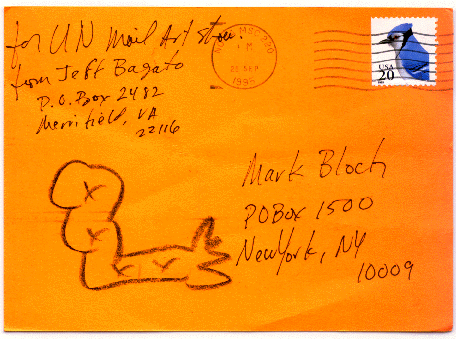 for UN Mail Art Show
from Jeff Bagato
P.O. Box 2482
Merrifield, VA
22116
PM
SEP
1995
USA
20
Mark Bloch
PO Box 1500
New York, NY
10009